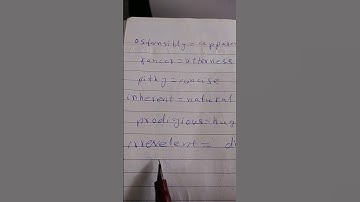 ostensibly = appare
rancor = bitterness
pithy = concise
inherent = natural
prodigious = hug
prevelent = di